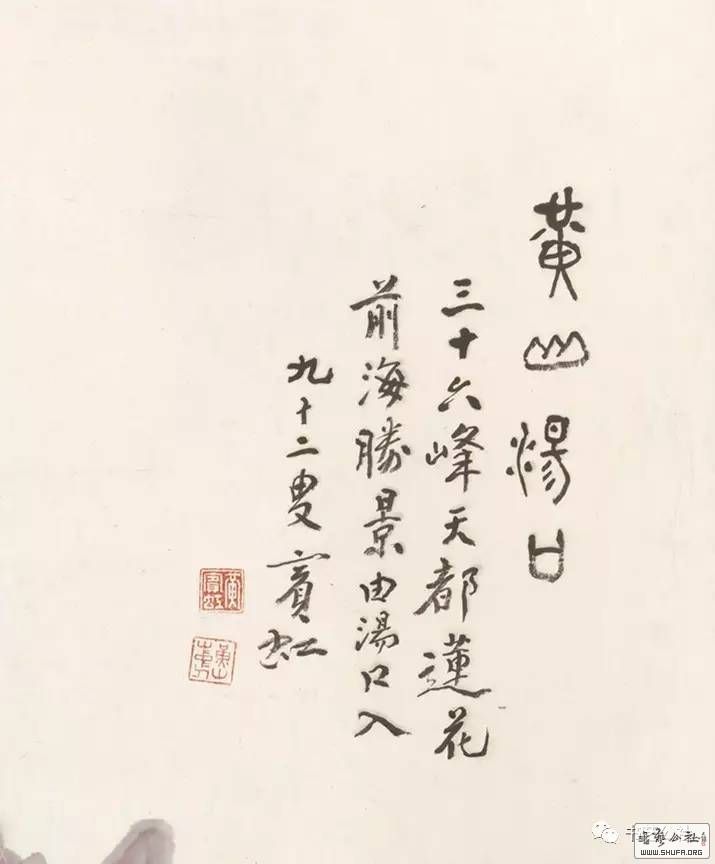 黄山湯口
三十六峰天都蓮花
前海勝景由湯口入
九十二叟賓虹
黄賓虹
黄山山中人
書藝公社
WWW.SHUFA.ORG